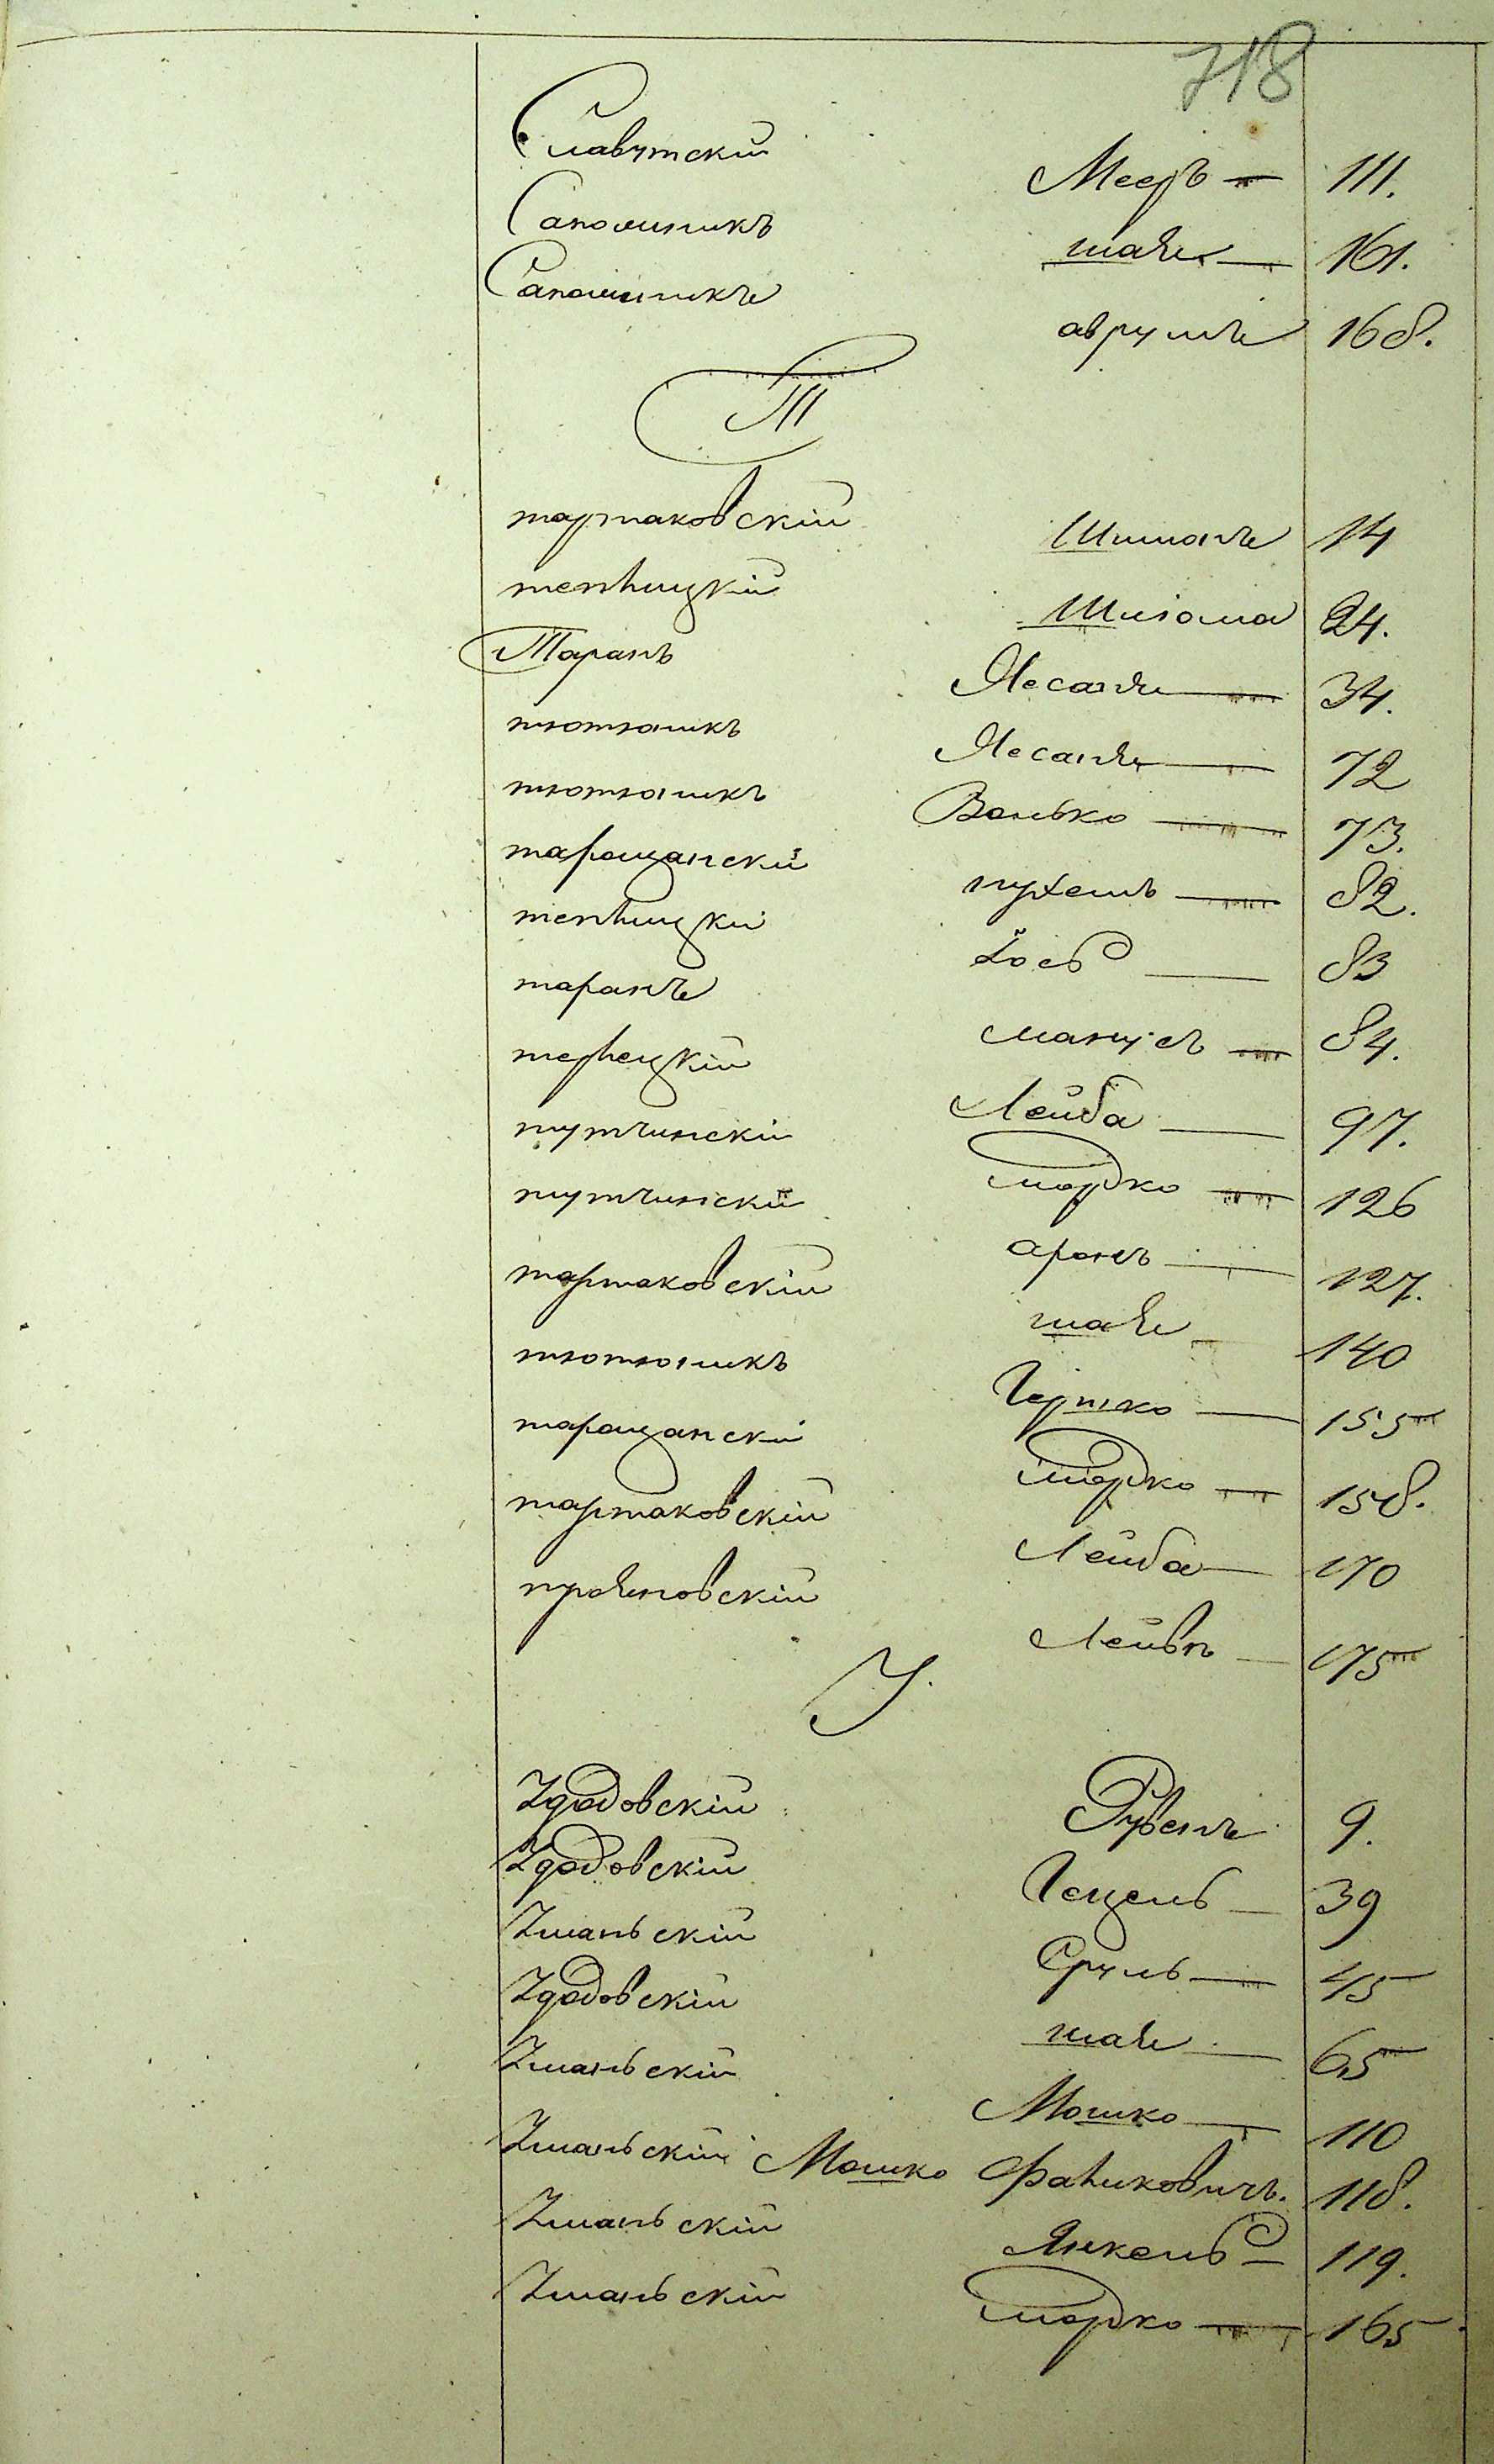 718
Славутскій Мееръ — 111.
Сапожникъ шаѣ — 161.
Сапожникъ аврумъ 168.
Т
тартаковскій Шиманъ 14
теплицкій Шліома 24.
Таранъ Несанъ — 34.
тютюникъ Несанъ — 72
тютюникъ Волько — 73.
таращанскій 82.
теплицкій Іось — 83
таранъ манусъ — 84.
терлецкій Лейба — 97.
тутчинскій мордко — 126
тутчинскій аронъ — 127.
тартаковскій шаѣ 140
тютюникъ Гершко — 155
таращанскій мордко — 158.
тартаковскій Лейба — 170
трояновскій Лейвъ — 175
У.
Удодовскій Рувенъ 9.
Удодовскій Гецель — 39
Уманьскій Сруль — 45
Удодовскій шаѣ — 65
Уманьскій Мошко — 110
Уманьскій Мошко Фаликовичъ. 118.
Уманьскій Янкель — 119.
Уманьскій мордко — 165